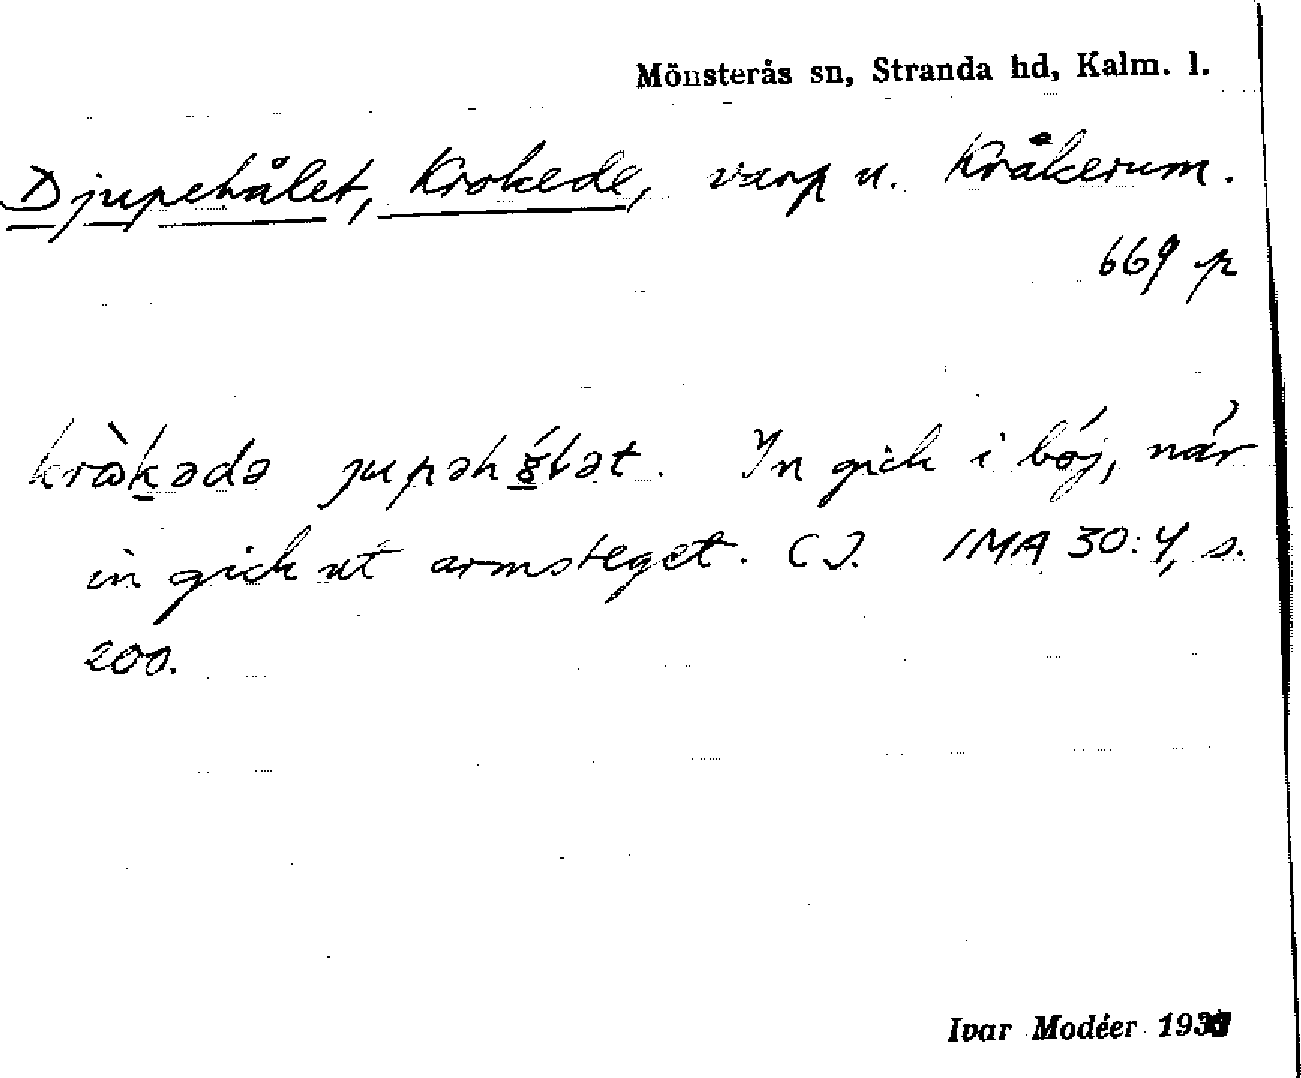 Mönsterås sn, Stranda hd, Kalm. l.
Djupehålet, Krokede, varp u. Kråkerum.
669 p
kròkədə jupəhǫ́lət. In gick i böj, när
in gick ut armsteget. CJ. IMA 30:4, s.
200.
Ivar Modéer 193